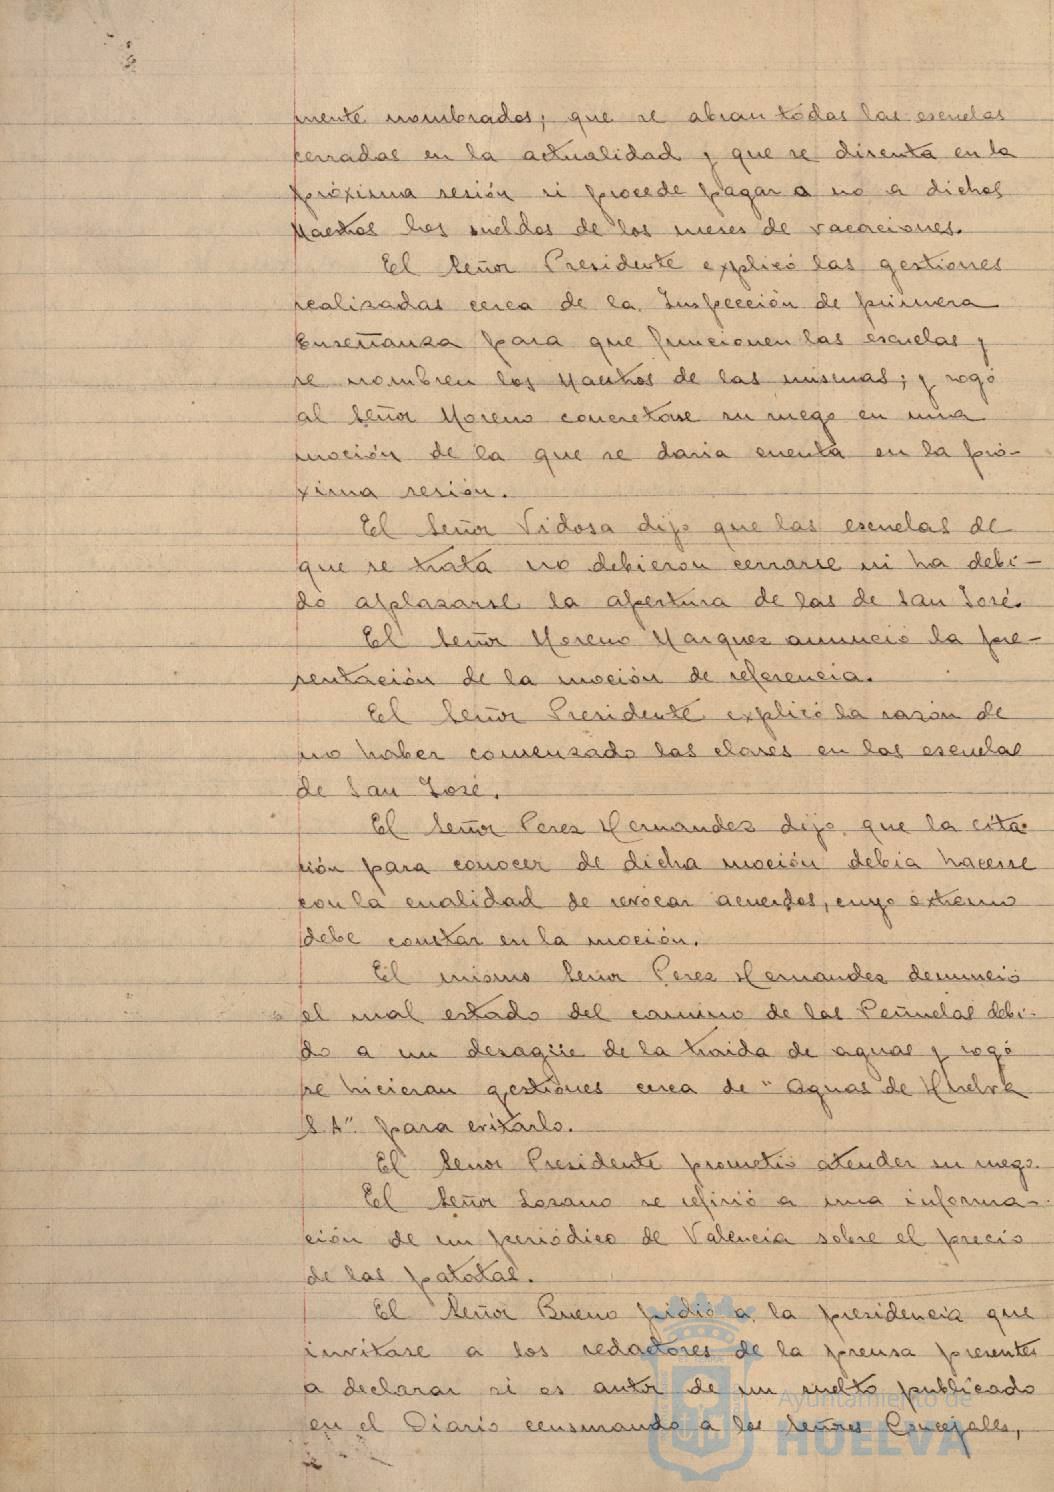 mente nombrados; que se abran todas las escuelas
cerradas en la actualidad y que se discuta en la
próxima sesión si procede pagar o no a dichos
Maestros los sueldos de los meses de vacaciones.
El Señor Presidente explicó las gestiones
realizadas cerca de la Inspección de primera
Enseñanza para que funcionen las escuelas y
se nombren los Maestros de las mismas; y rogó
al Señor Moreno concretase su ruego en una
moción de la que se daria cuenta en la pró-
xima sesión.
El Señor Vidosa dijo que las escuelas de
que se trata no debieron cerrarse ni ha debi-
do aplazarse la apertura de las de San José.
El Señor Moreno Marquez anunció la pre-
sentación de la moción de referencia.
El Señor Presidente explicó la razón de
no haber comenzado las clases en las escuelas
de San José.
El Señor Perez Hernandez dijo que la cita-
ción para conocer de dicha moción debia hacerse
con la cualidad de revocar acuerdos, cuyo extremo
debe constar en la moción.
El mismo Señor Perez Hernandez denunció
el mal estado del camino de las Peñuelas debi-
do a un desagüe de la traida de aguas y rogó
se hicieran gestiones cerca de "Aguas de Huelva
S.A". para evitarlo.
El Señor Presidente prometió atender su ruego.
El Señor Lozano se refirió a una informa-
ción de un periódico de Valencia sobre el precio
de las patatas.
El Señor Bueno pidió a la presidencia que
invitase a los redactores de la prensa presentes
a declarar si es autor de un suelto publicado
en el Diario censurando a los Señores Concejales,
Ayuntamiento de
HUELVA